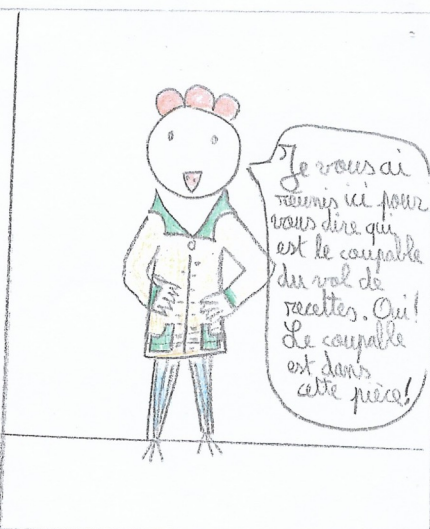 Je vous ai
réunis ici pour
vous dire qui
est le coupable
du vol de
recettes. Oui!
Le coupable
est dans
cette pièce!